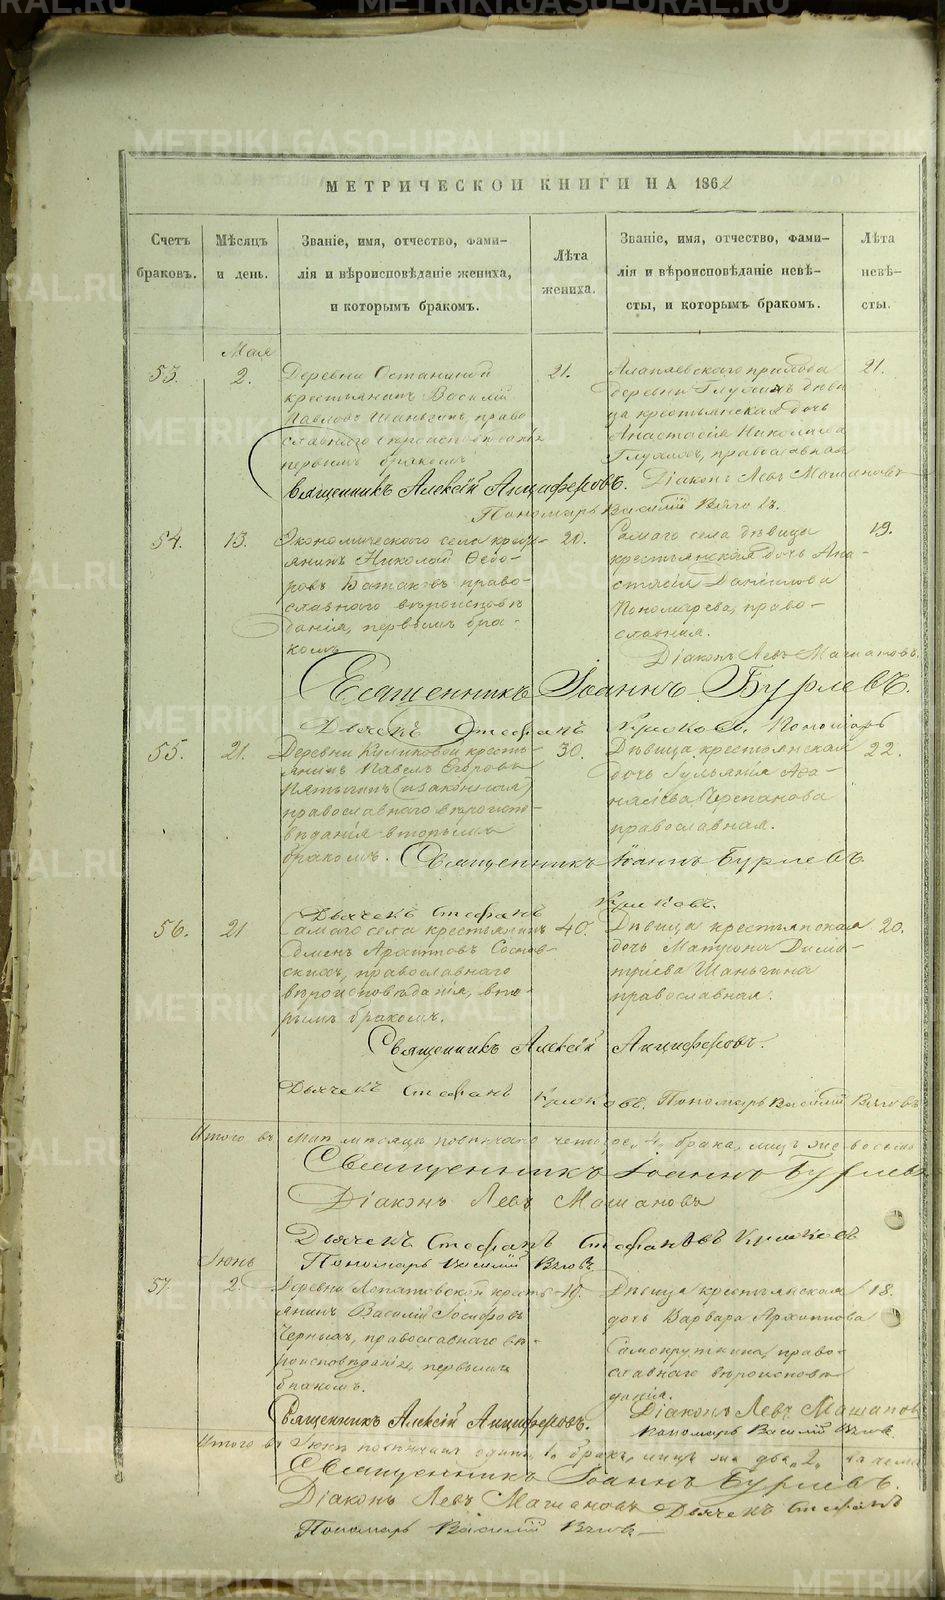 МЕТРИЧЕСКОЙ КНИГИ НА 1862
Счетъ браковъ.
Мѣсяцъ и день.
Званіе, имя, отчество, фами-
лія и вѣроисповѣданіе жениха,
и которымъ бракомъ.
Лѣта жениха.
Званіе, имя, отчество, фами-
лія и вѣроисповѣданіе невѣ-
сты, и которымъ бракомъ.
Лѣта невѣ-
сты.
Мая
53.
2.
Деревни Останиной
крестьянинъ Василій
Павловъ Шаньгинъ, право
славнаго вѣроисповѣданія
первымъ бракомъ
21.
Алапаевскаго прихода
деревни Глухихъ дѣви
ца крестьянская дочь
Анастасія Николаева
Глухихъ, православная
21.
Священникъ Алексій Анциферовъ.
Діаконъ Левъ Машановъ
Пономарь Василій
54.
13.
села крест-
янинъ Николай Ѳедо-
ровъ право-
славнаго вѣроисповѣ
данія, первымъ бра-
комъ
20.
Самаго села дѣвица
крестьянская дочь Ана-
стасія Данилова
Пономарева, право-
славная.
19.
Діаконъ Левъ Машановъ.
Священникъ Іоаннъ Бурлевъ.
Дьячекъ Стефанъ Крюковъ. Пономарь
55.
21.
Деревни Куликовой кресть-
янинъ Павелъ Егоровъ
православнаго вѣроиспо-
вѣданія вторымъ
бракомъ.
30.
Дѣвица крестьянская
дочь Іульянія Аѳа-
насіева Черепанова
православная.
22.
Священникъ Іоаннъ Бурлевъ
Дьячекъ Стефанъ Крюковъ.
56.
21
Самаго села крестьянинъ
Семенъ Архиповъ Соснов-
скихъ, православнаго
вѣроисповѣданія, вто-
рымъ бракомъ.
40.
Дѣвица крестьянская
дочь Матрона Дими-
тріева Шаньгина
православная.
20.
Священникъ Алексій Анциферовъ.
Дьячекъ Стефанъ Крюковъ. Пономарь Василій
Итого въ маѣ мѣсяцѣ четыре "4" брака, лицъ же восемь
Священникъ Іоаннъ Бурлевъ
Діаконъ Левъ Машановъ
Дьячекъ Стефанъ Стефановъ Крюковъ
Пономарь Василій
Іюнь
57.
2.
Деревни кресть-
янинъ Василій Іосифовъ
Черныхъ, православнаго вѣ-
роисповѣданія, первымъ
бракомъ.
19.
Дѣвица крестьянская
дочь Варвара Архипова
Самокруткина, право-
славнаго вѣроисповѣ
данія.
18.
Священникъ Алексій Анциферовъ.
Діаконъ Левъ Машановъ
Пономарь Василій
Итого въ Іюнѣ одинъ "1" бракъ, лицъ же два "2"
Священникъ Іоаннъ Бурлевъ.
Діаконъ Левъ Машановъ Дьячекъ Стефанъ
Пономарь Василій
METRIKI.GASO-URAL.RU